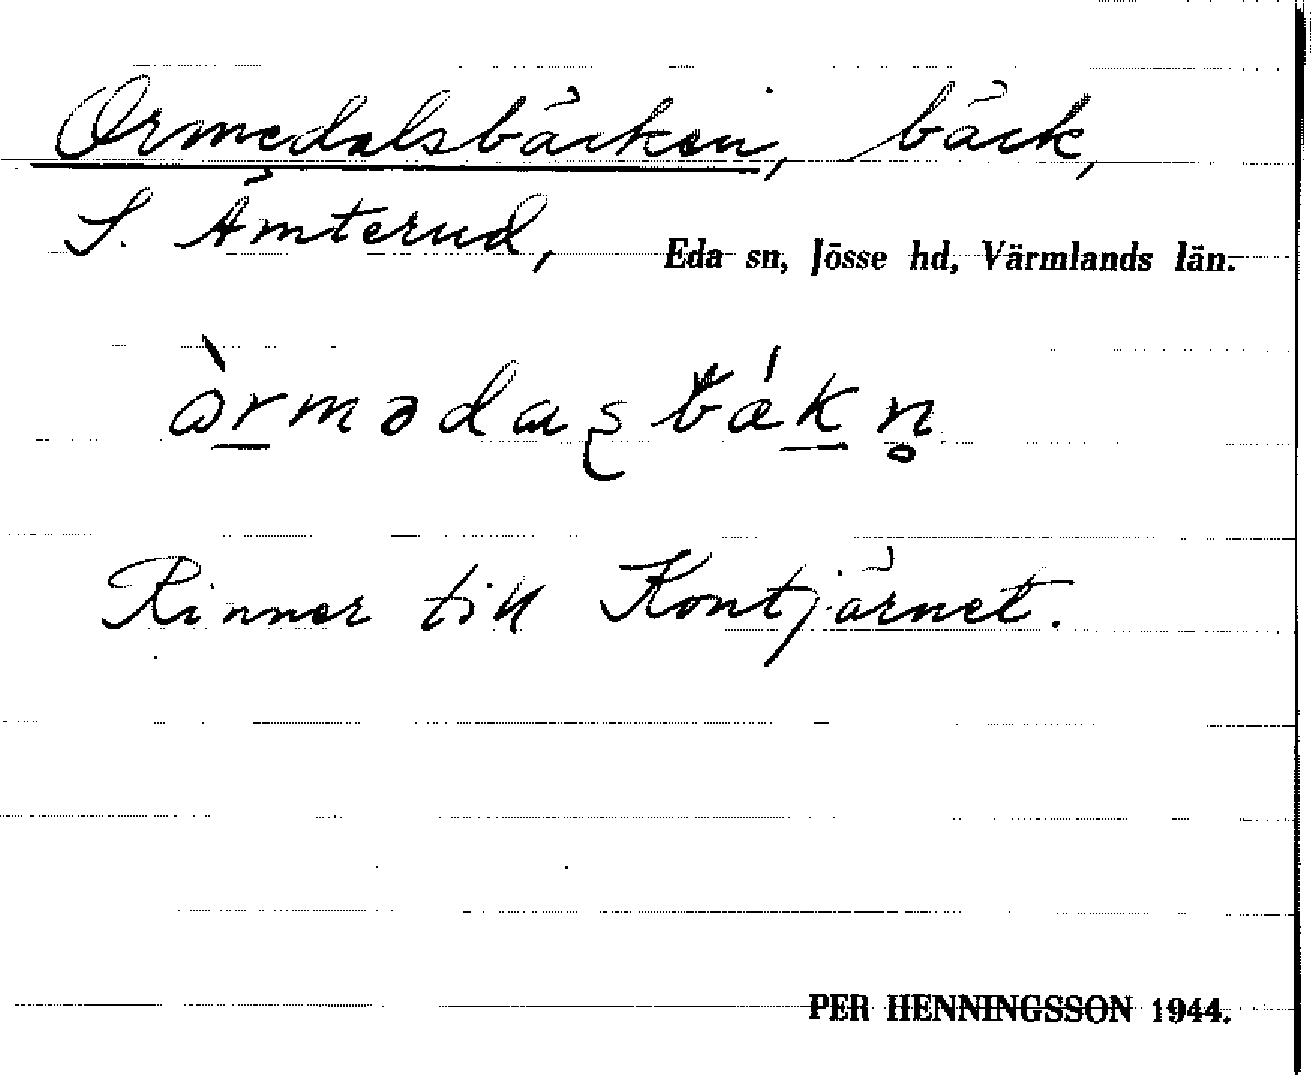 Ormedalsbäcken, bäck,
S. Åmterud, Eda sn, Jösse hd, Värmlands län.
Rinner till Kontjärnet.
PER HENNINGSSON 1944.